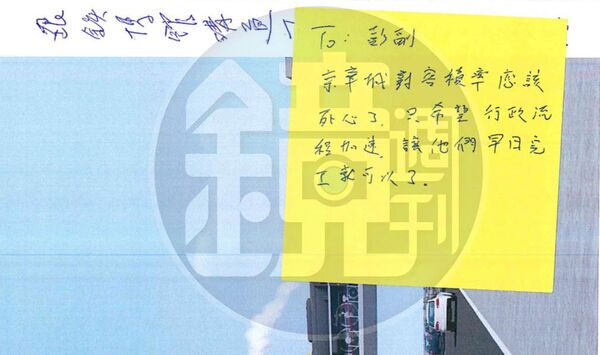 To: 彭副
京華城對容積率應該
死心了，只希望行政流
程加速，讓他們早日完
工就可以了.
鏡週刊